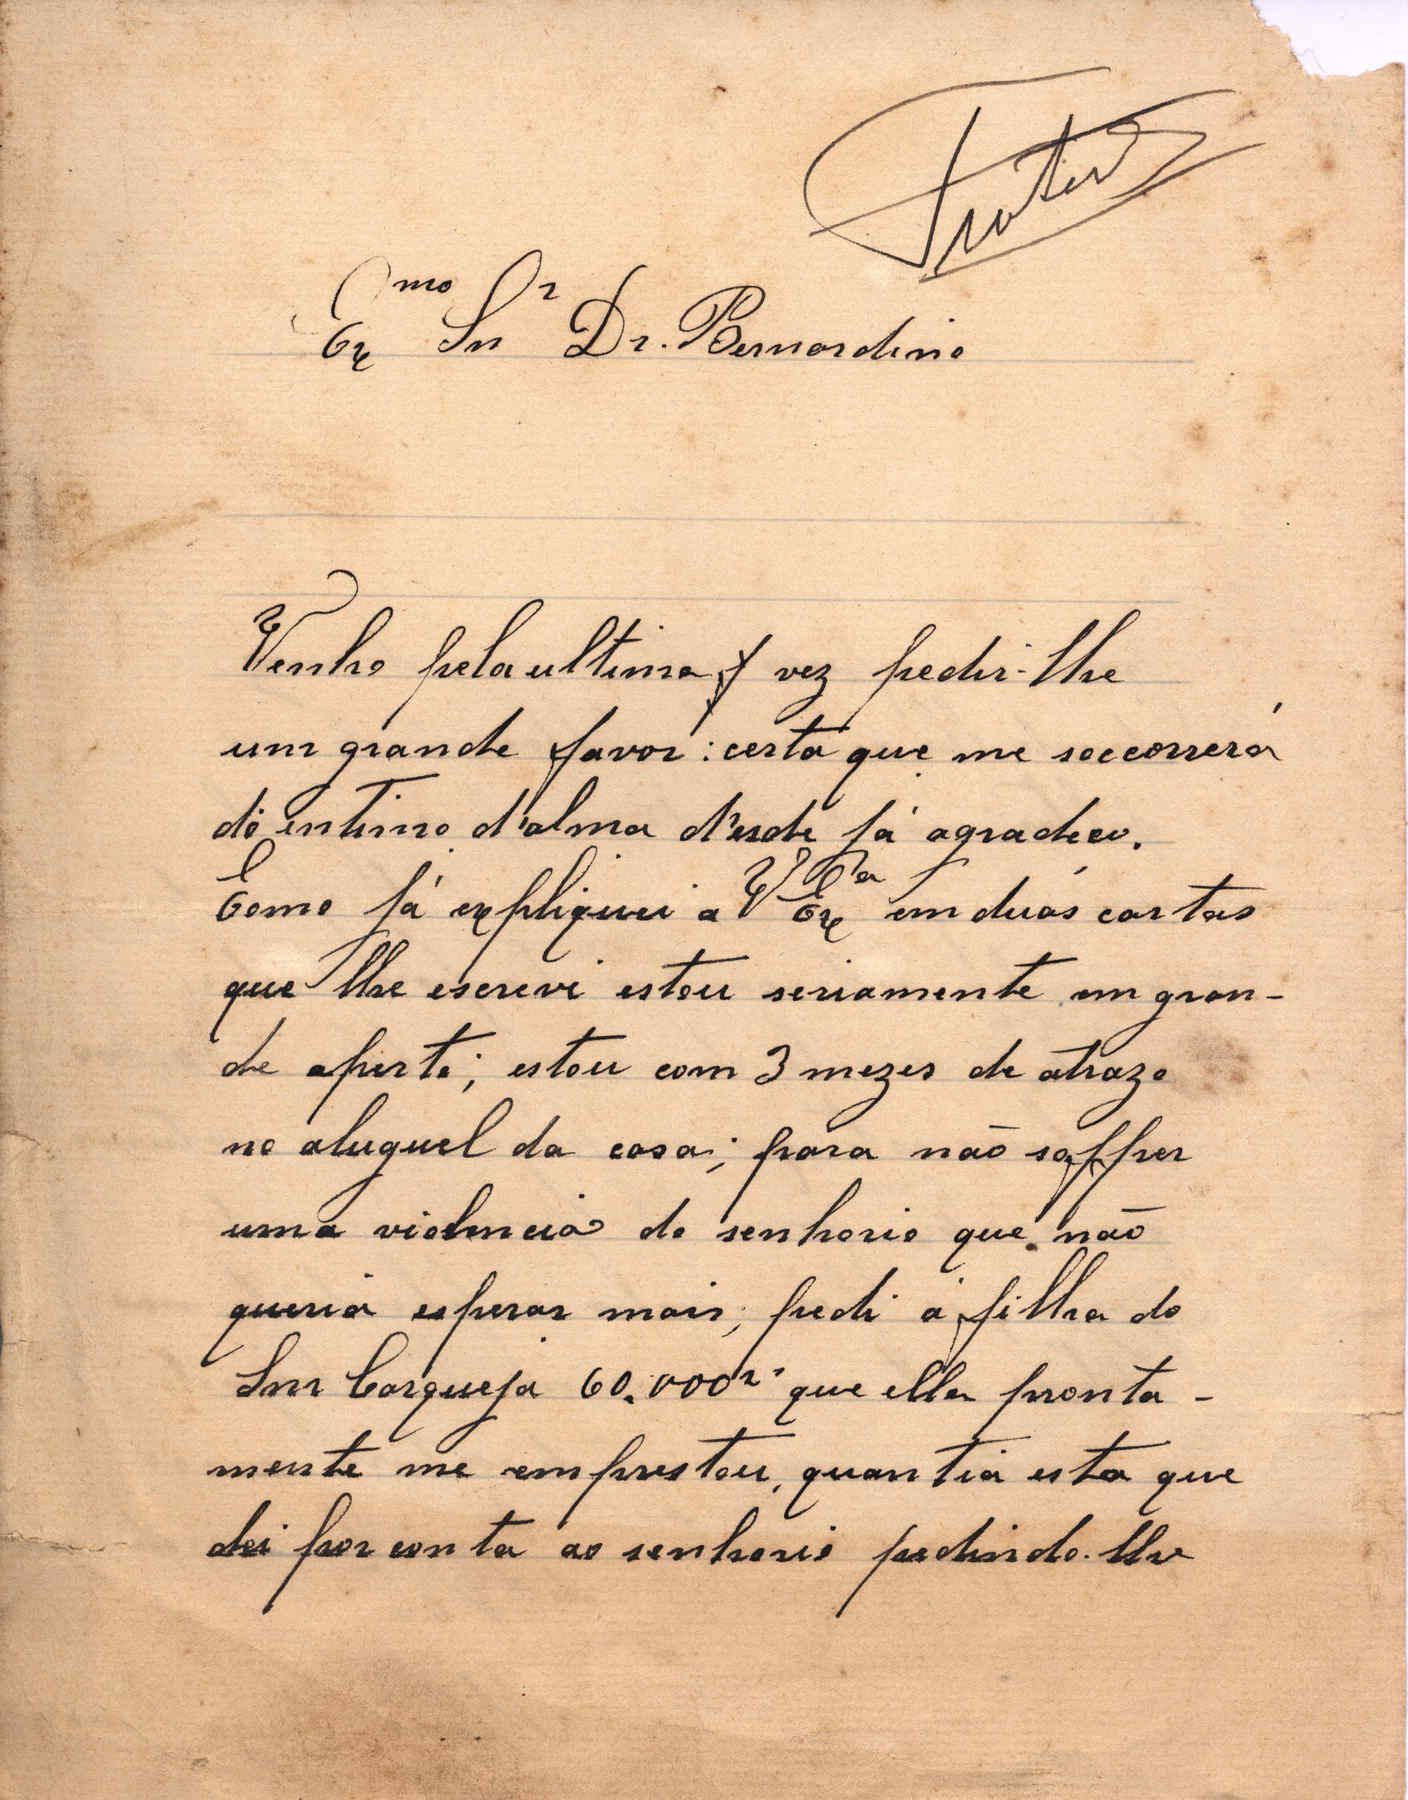 Exmo Snr Dr. Bernardino
Venho pela ultima vez pedir-lhe
um grande favor: certa que me soccorrerá
do intimo d'alma d'esde já agradeço.
Como já expliquei a V Exa em duas cartas
que lhe escrevi estou seriamente em gran-
de aperto; estou com 3 mezes de atrazo
no aluguel da casa; para não soffrer
uma violencia do senhorio que não
queria esperar mais, pedi á filha do
Snr Carqueja 60.000rs que ella pronta-
mente me emprestou, quantia esta que
dei por conta ao senhorio pedindo-lhe